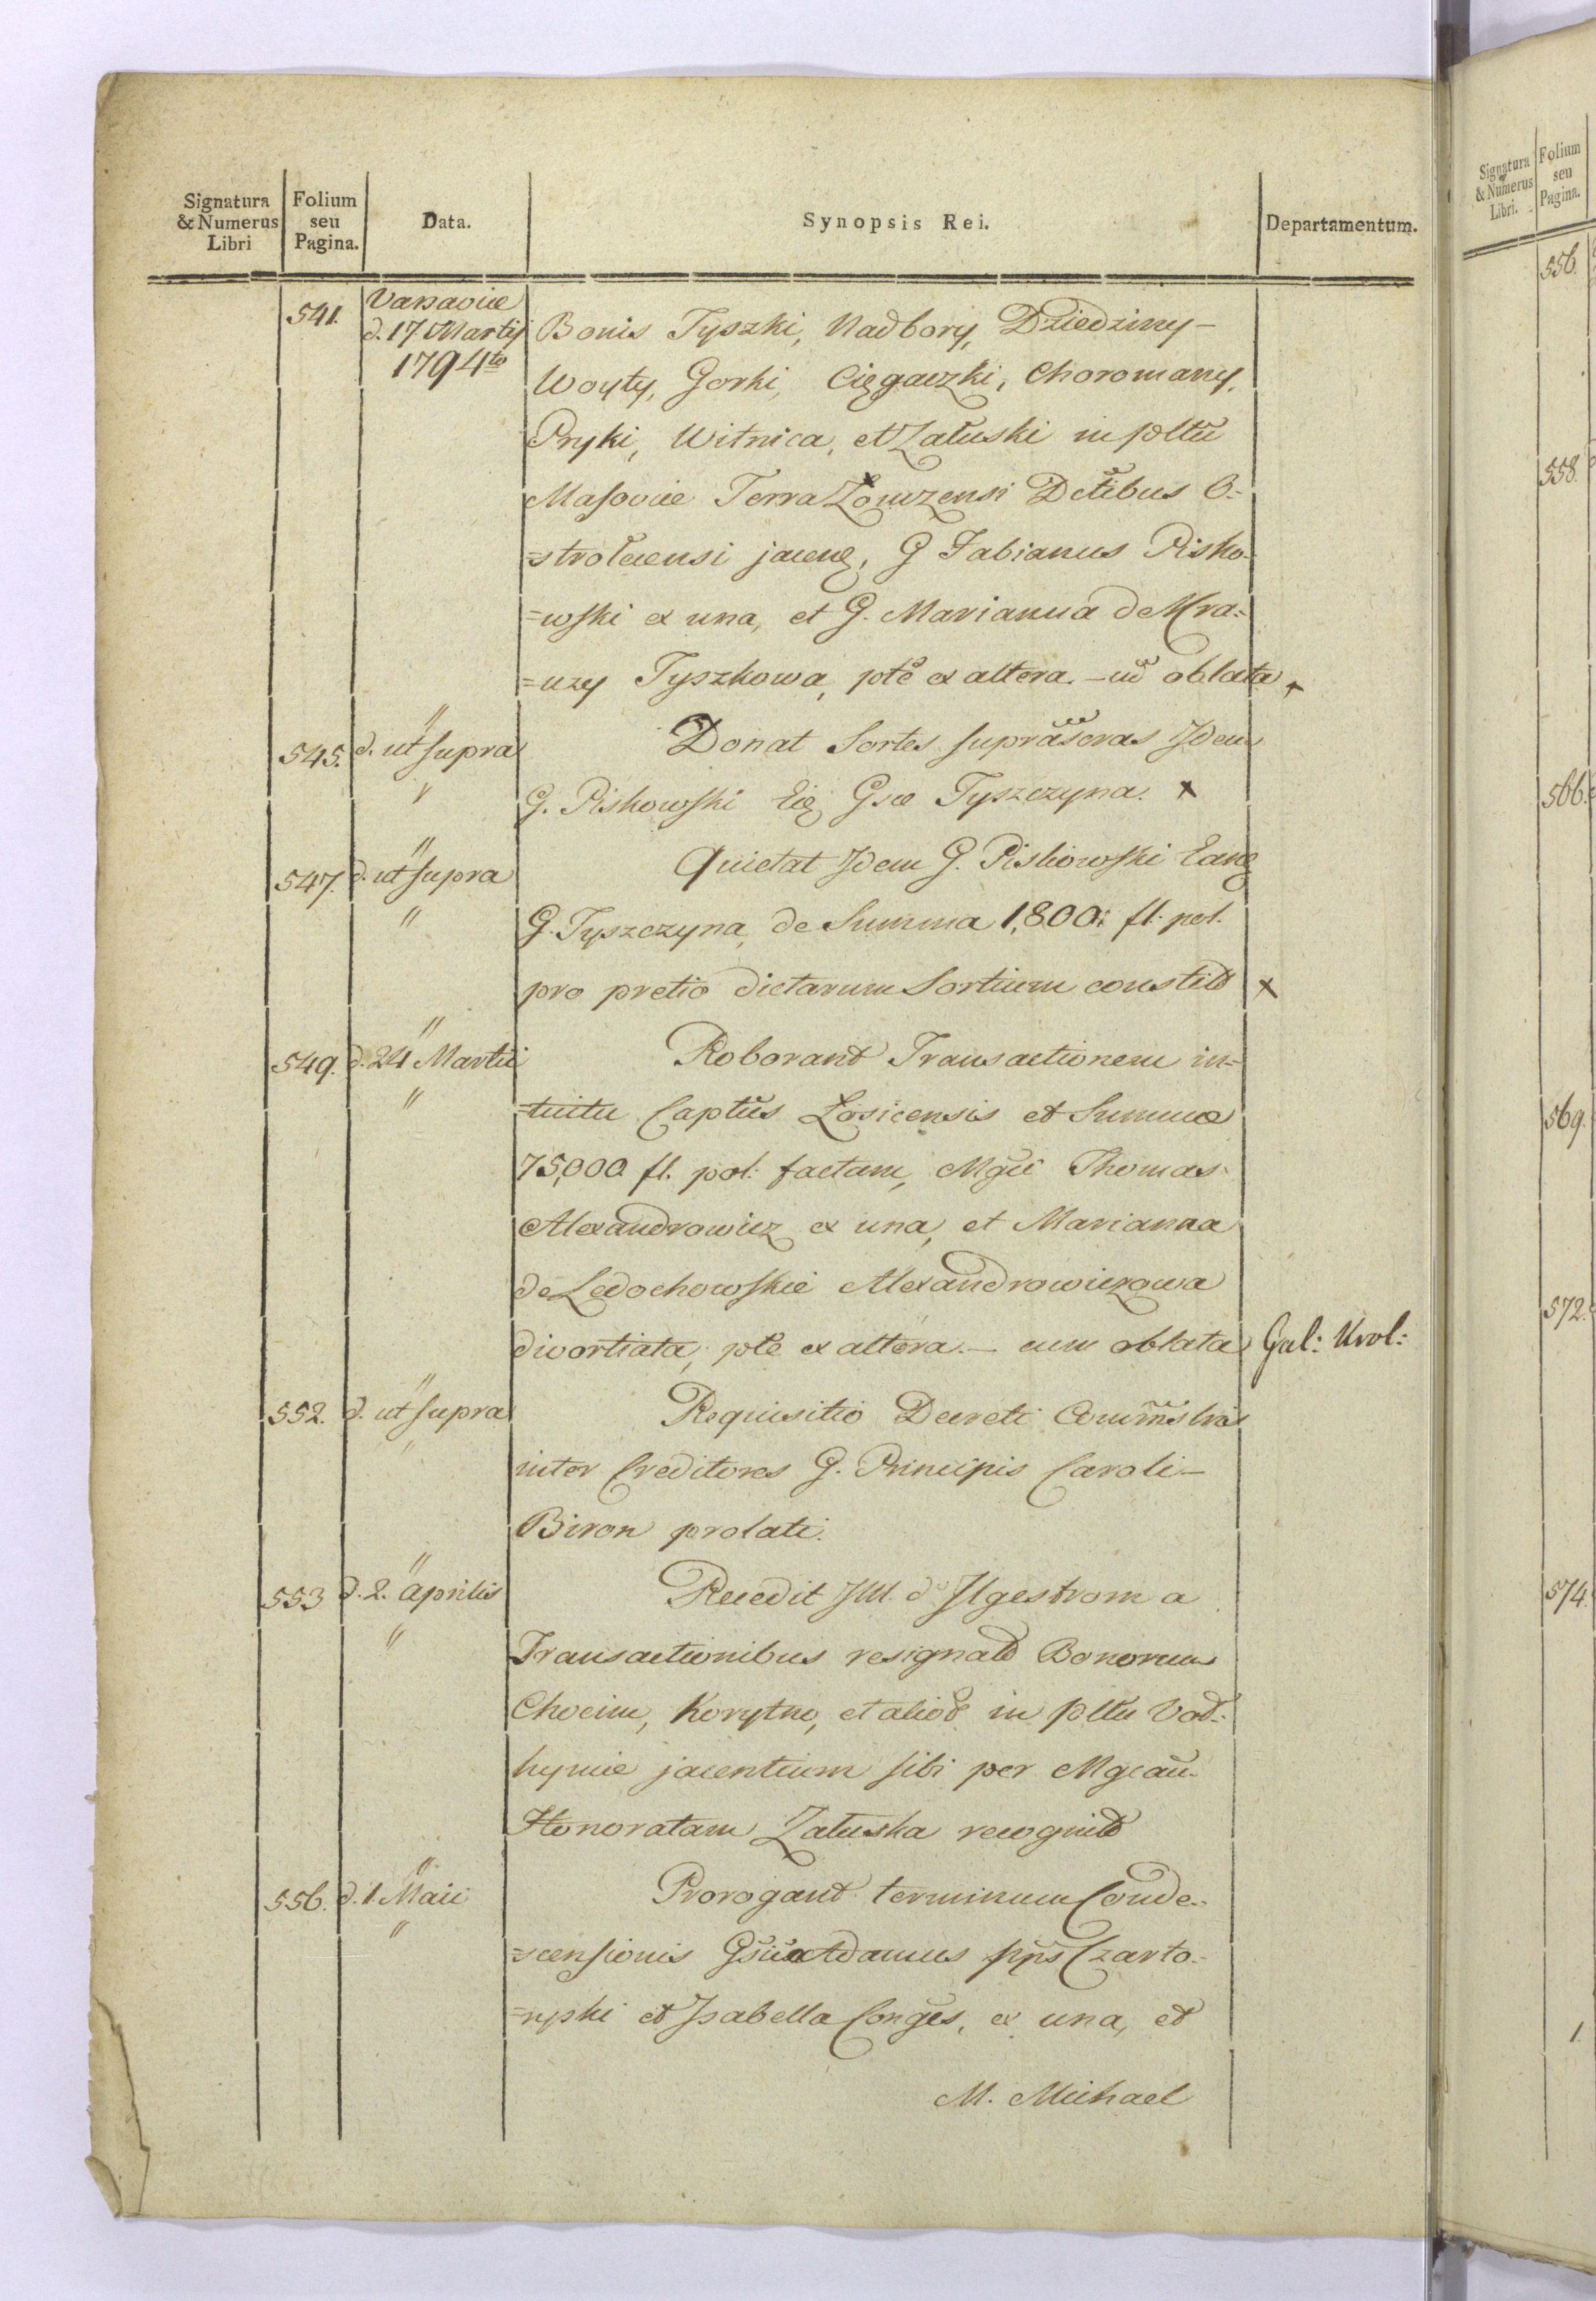 Signatura & Numerus Libri
Folium seu Pagina.
Data.
Synopsis Rei.
Departamentum.
541. Varsaviæ
d. 17 Martij
1794to
Bonis Tyszki, Nadbory, Dziedziny-
Woyty, Gorki, Cięgaczki, Choromany,
Pryki, Witnica, et Załuski in pltu
Masoviæ Terra Łomzensi Dctibus O-
=strołecensi jacen, G Fabianus Pisko-
=wski ex una, et G. Marianna de Mra=
=uzy Tyszkowa, pte ex altera. - cu oblata +
545. d. ut supra
Donat Sortes supraseras Idem
G. Piskowski Eię Gsæ Tyszczyna. x
547. d. ut supra
Quietat Idem G. Piskowski Eang
G. Tyszczyna, de Summa 1,800. fl. pol.
pro pretio dictarum Sortium constit x
549. d. 24 Martii
Roborant Transactionem in=
=tuitu Captus Łosicensis et Summæ
75,000 fl. pol: factam, Mgci Thomas
Alexandrowicz ex una, et Marianna
de Ledochowskie Alexandrowiczowa
divortiata, pte ex altera. - cum oblata Gal: Krol:
552. d. ut supra
Requisitio Decreti Commstris
inter Creditores G. Principis Caroli-
Biron prolati.
553 d. 2. Aprilis
Recedit Ill. d' Jlgestrom a
Transactionibus resignat Bonorum
Chocim, Korytno, et alior in pltu Vod-
hyniæ jacentium sibi per Mgcam
Honoratam Załuska recognit
556. d. 1. Maii
Prorogant terminum Conde-
=scensionis Gsii Adamus pps Czarto-
=ryski et Isabella Conges, ex una, et
M. Michael
Signatura & Numerus Libri.
Folium seu Pagina.
556.
558.
566.
569.
572.
574.
1